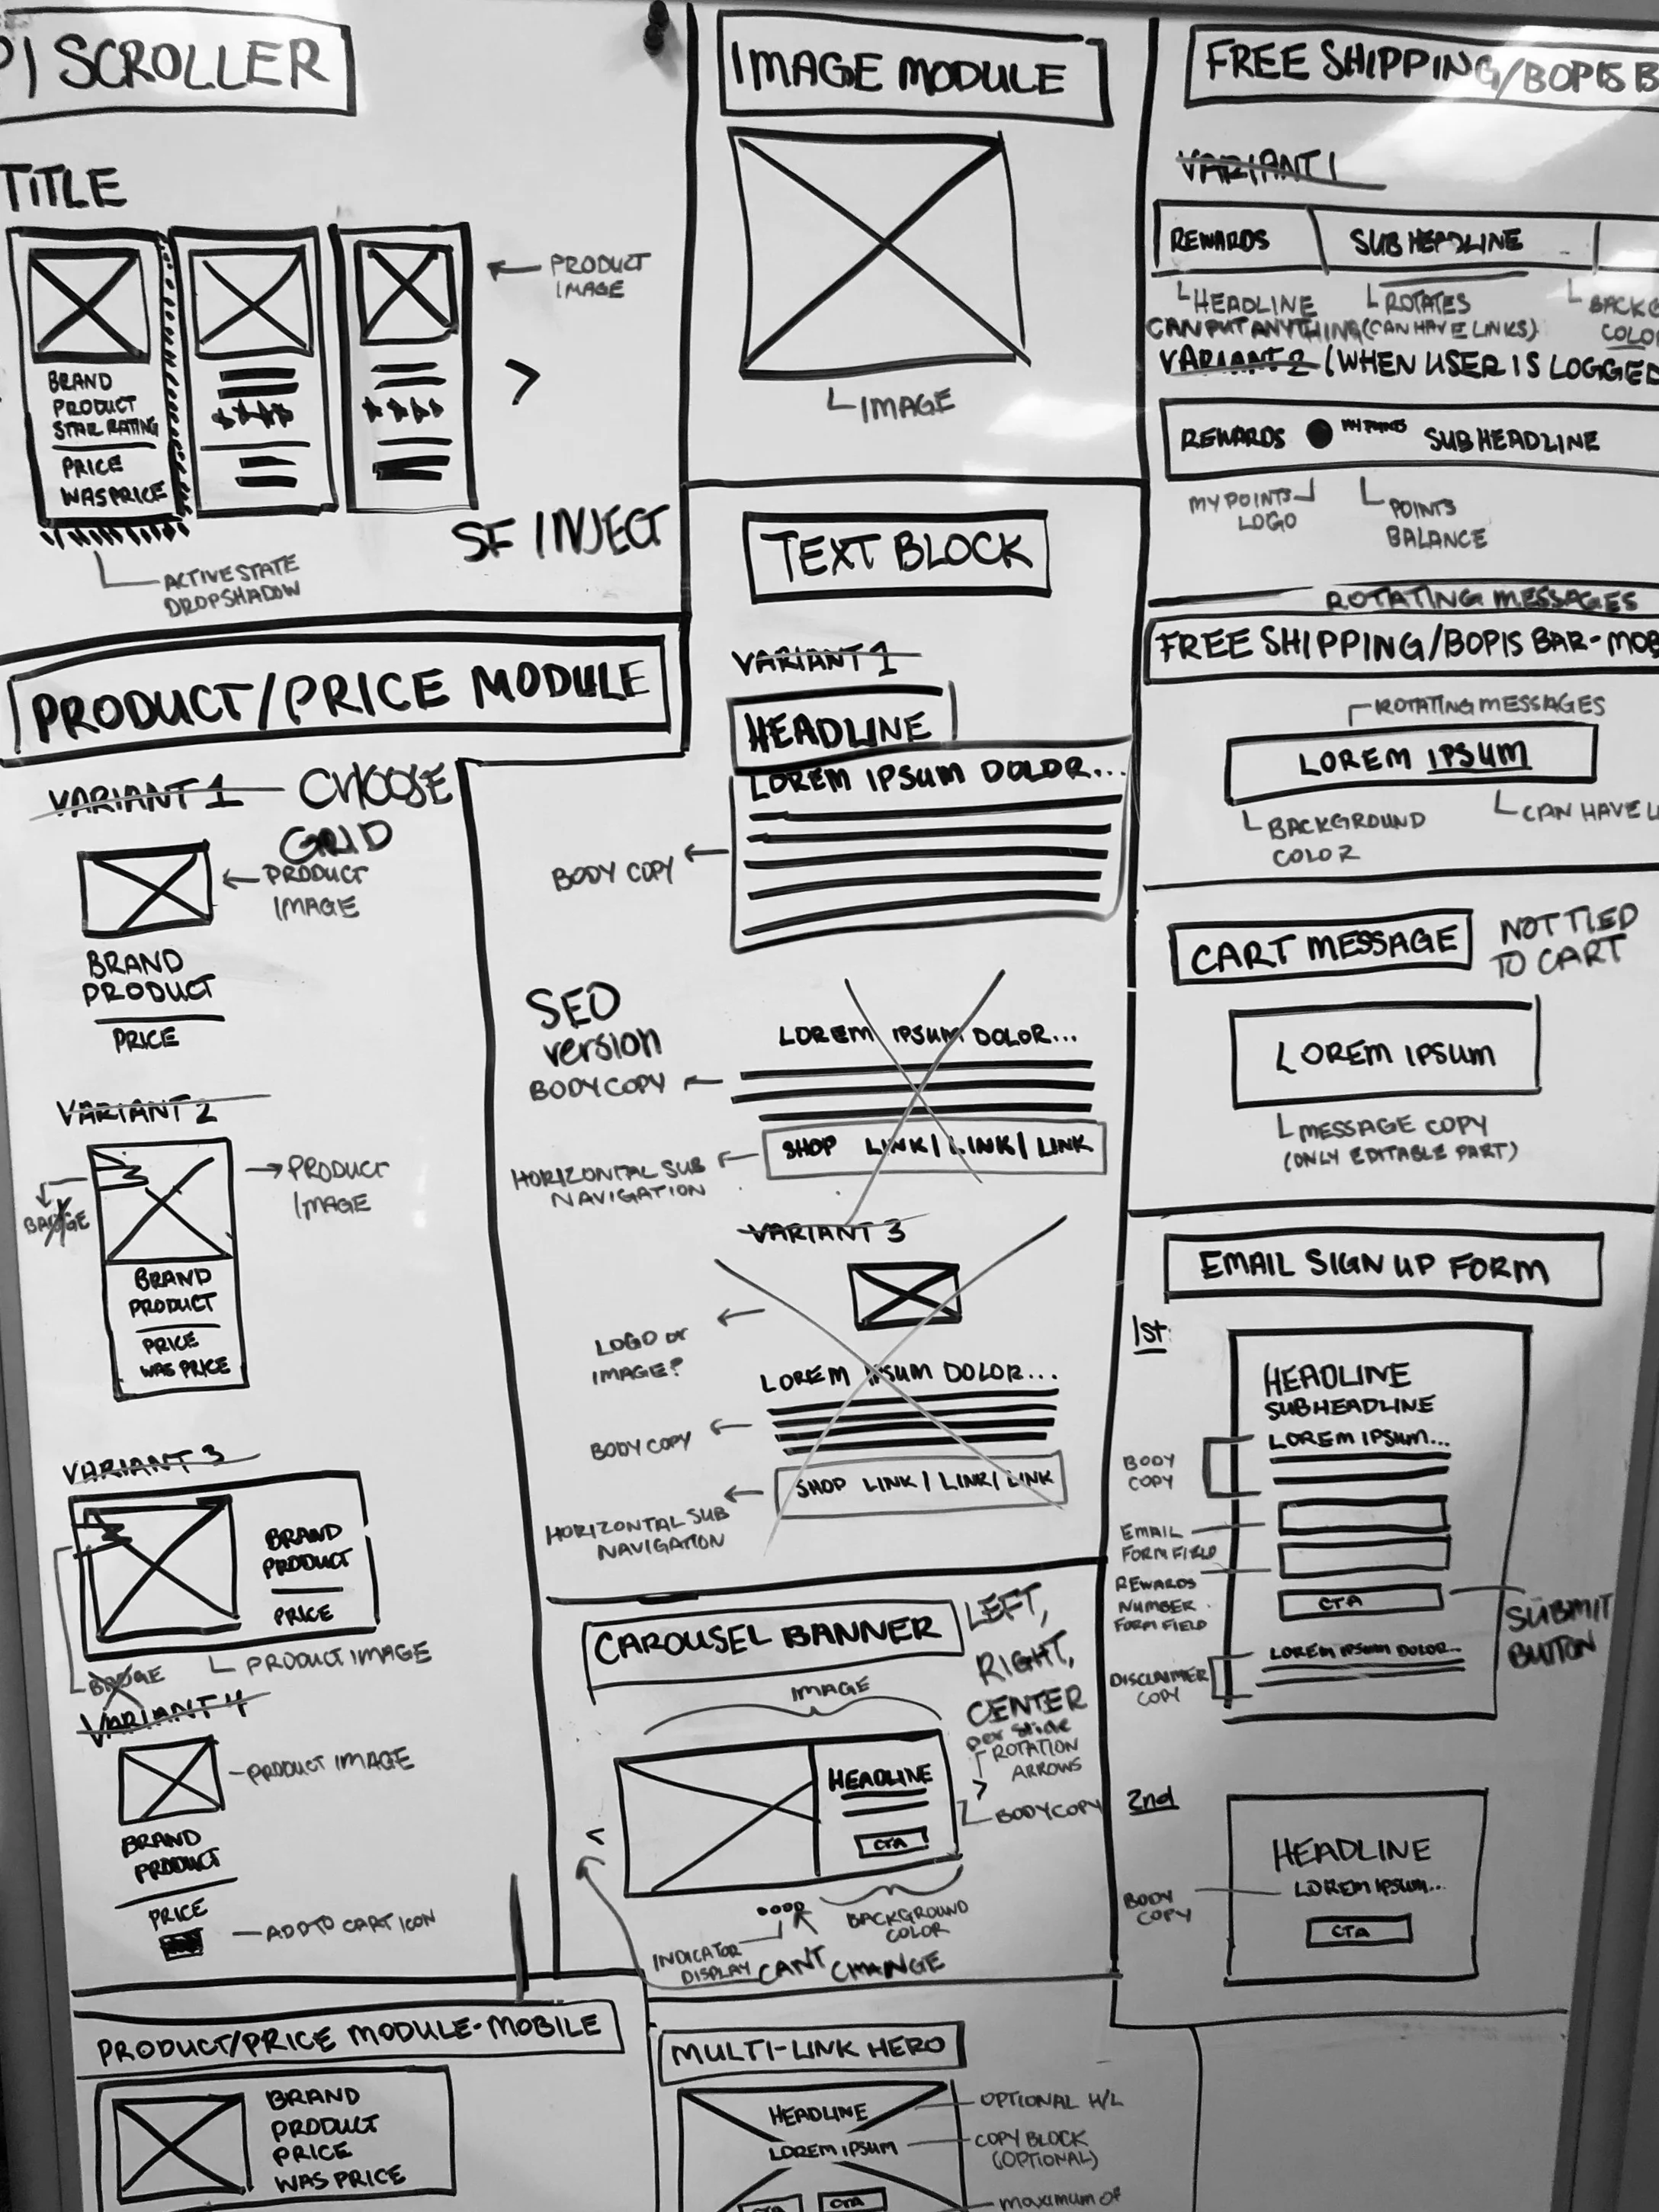 SCROLLER
TITLE
BRAND
PRODUCT
STAR RATING
PRICE
WAS PRICE
PRODUCT
IMAGE
>
SF INJECT
ACTIVE STATE
DROPSHADOW
PRODUCT/PRICE MODULE
VARIANT 1
CHOOSE
GRID
PRODUCT
IMAGE
BRAND
PRODUCT
PRICE
VARIANT 2
PRODUCT
IMAGE
BADGE
BRAND
PRODUCT
PRICE
WAS PRICE
VARIANT 3
BRAND
PRODUCT
PRICE
BADGE
PRODUCT IMAGE
VARIANT 4
PRODUCT IMAGE
BRAND
PRODUCT
PRICE
ADD TO CART ICON
PRODUCT/PRICE MODULE-MOBILE
BRAND
PRODUCT
PRICE
WAS PRICE
IMAGE MODULE
IMAGE
TEXT BLOCK
VARIANT 1
HEADLINE
LOREM IPSUM DOLOR...
BODY COPY
SEO
version
LOREM IPSUM DOLOR...
BODY COPY
SHOP LINK | LINK | LINK
HORIZONTAL SUB
NAVIGATION
VARIANT 3
LOGO or
IMAGE?
LOREM IPSUM DOLOR...
BODY COPY
SHOP LINK | LINK | LINK
HORIZONTAL SUB
NAVIGATION
CAROUSEL BANNER
LEFT,
RIGHT,
CENTER
per slide
IMAGE
ROTATION
ARROWS
>
HEADLINE
BODY COPY
CTA
<
BACKGROUND
COLOR
INDICATOR
DISPLAY
CAN'T CHANGE
MULTI-LINK HERO
HEADLINE
OPTIONAL H/L
LOREM IPSUM
COPY BLOCK
(OPTIONAL)
CTA CTA
MAXIMUM OF
FREE SHIPPING/BOPIS B
VARIANT 1
REWARDS SUBHEADLINE
HEADLINE
CAN PUT ANYTHING
ROTATES
(CAN HAVE LINKS)
VARIANT 2 (WHEN USER IS LOGGED
REWARDS MY POINTS SUBHEADLINE
MY POINTS
LOGO
POINTS
BALANCE
ROTATING MESSAGES
FREE SHIPPING/BOPIS BAR-MOB
ROTATING MESSAGES
LOREM IPSUM
BACKGROUND
COLOR
CAN HAVE
CART MESSAGE
NOT TIED
TO CART
LOREM IPSUM
MESSAGE COPY
(ONLY EDITABLE PART)
EMAIL SIGN UP FORM
1st:
HEADLINE
SUBHEADLINE
LOREM IPSUM...
BODY
COPY
EMAIL
FORM FIELD
REWARDS
NUMBER
FORM FIELD
CTA
SUBMIT
BUTTON
LOREM IPSUM DOLOR...
DISCLAIMER
COPY
2nd
HEADLINE
LOREM IPSUM...
BODY
COPY
CTA